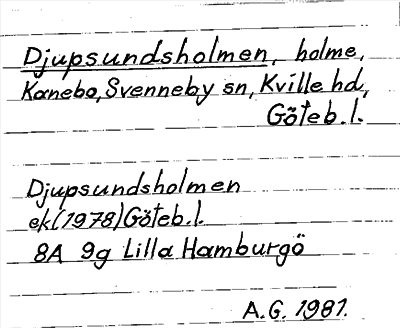 Djupsundsholmen, holme,
Kanebo, Svenneby sn, Kville hd,
Göteb.l.
Djupsundsholmen
ek(1978)Göteb.l.
8A 9g Lilla Hamburgö
A.G. 1981.